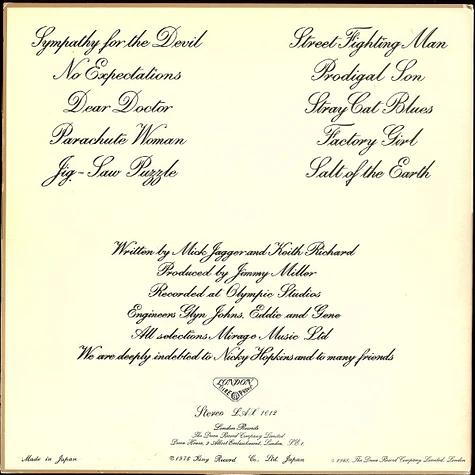 Sympathy for the Devil
No Expectations
Dear Doctor
Parachute Woman
Jig-Saw Puzzle
Street Fighting Man
Prodigal Son
Stray Cat Blues
Factory Girl
Salt of the Earth
Written by Mick Jagger and Keith Richard
Produced by Jimmy Miller
Recorded at Olympic Studios
Engineers Glyn Johns, Eddie and Gene
All selections Mirage Music Ltd
We are deeply indebted to Nicky Hopkins and to many friends
LONDON
Stereo LAX 1012
London Records
The Decca Record Company Limited
Decca House, 9 Albert Embankment, London, S.E.1
Made in Japan
℗ 1976 King Record Co., Ltd. Japan
© 1968, The Decca Record Company Limited, London